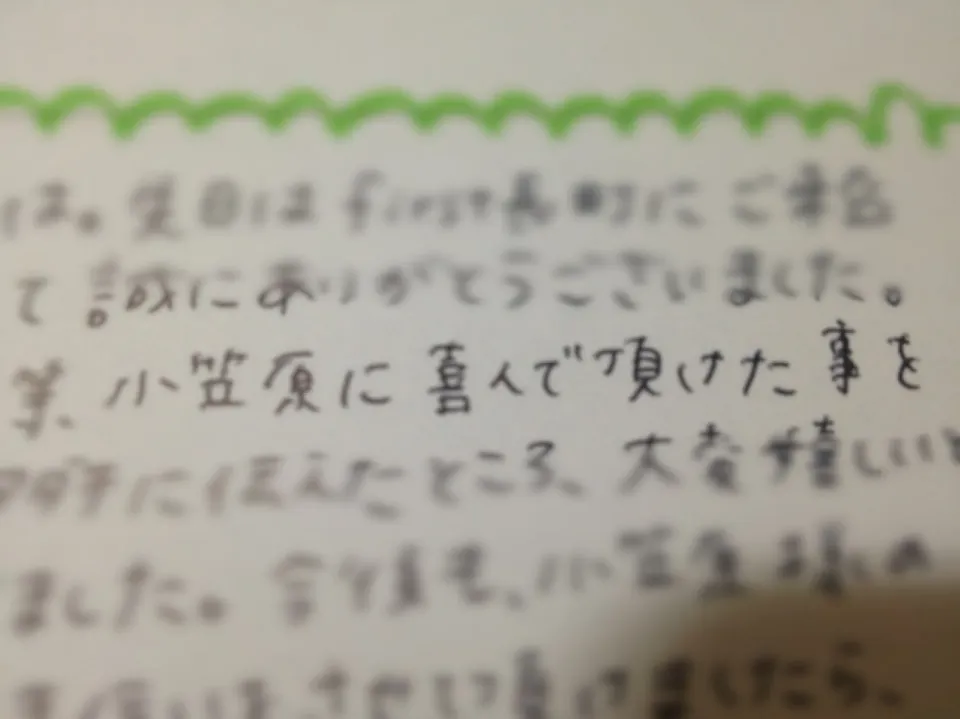 は。先日はfirst長町にご来店
て誠にありがとうございました。
業、小笠原に喜んで頂けた事を
に伝えたところ、大変嬉しいと
ました。今後も、小笠原様の
をさせて頂けましたら、